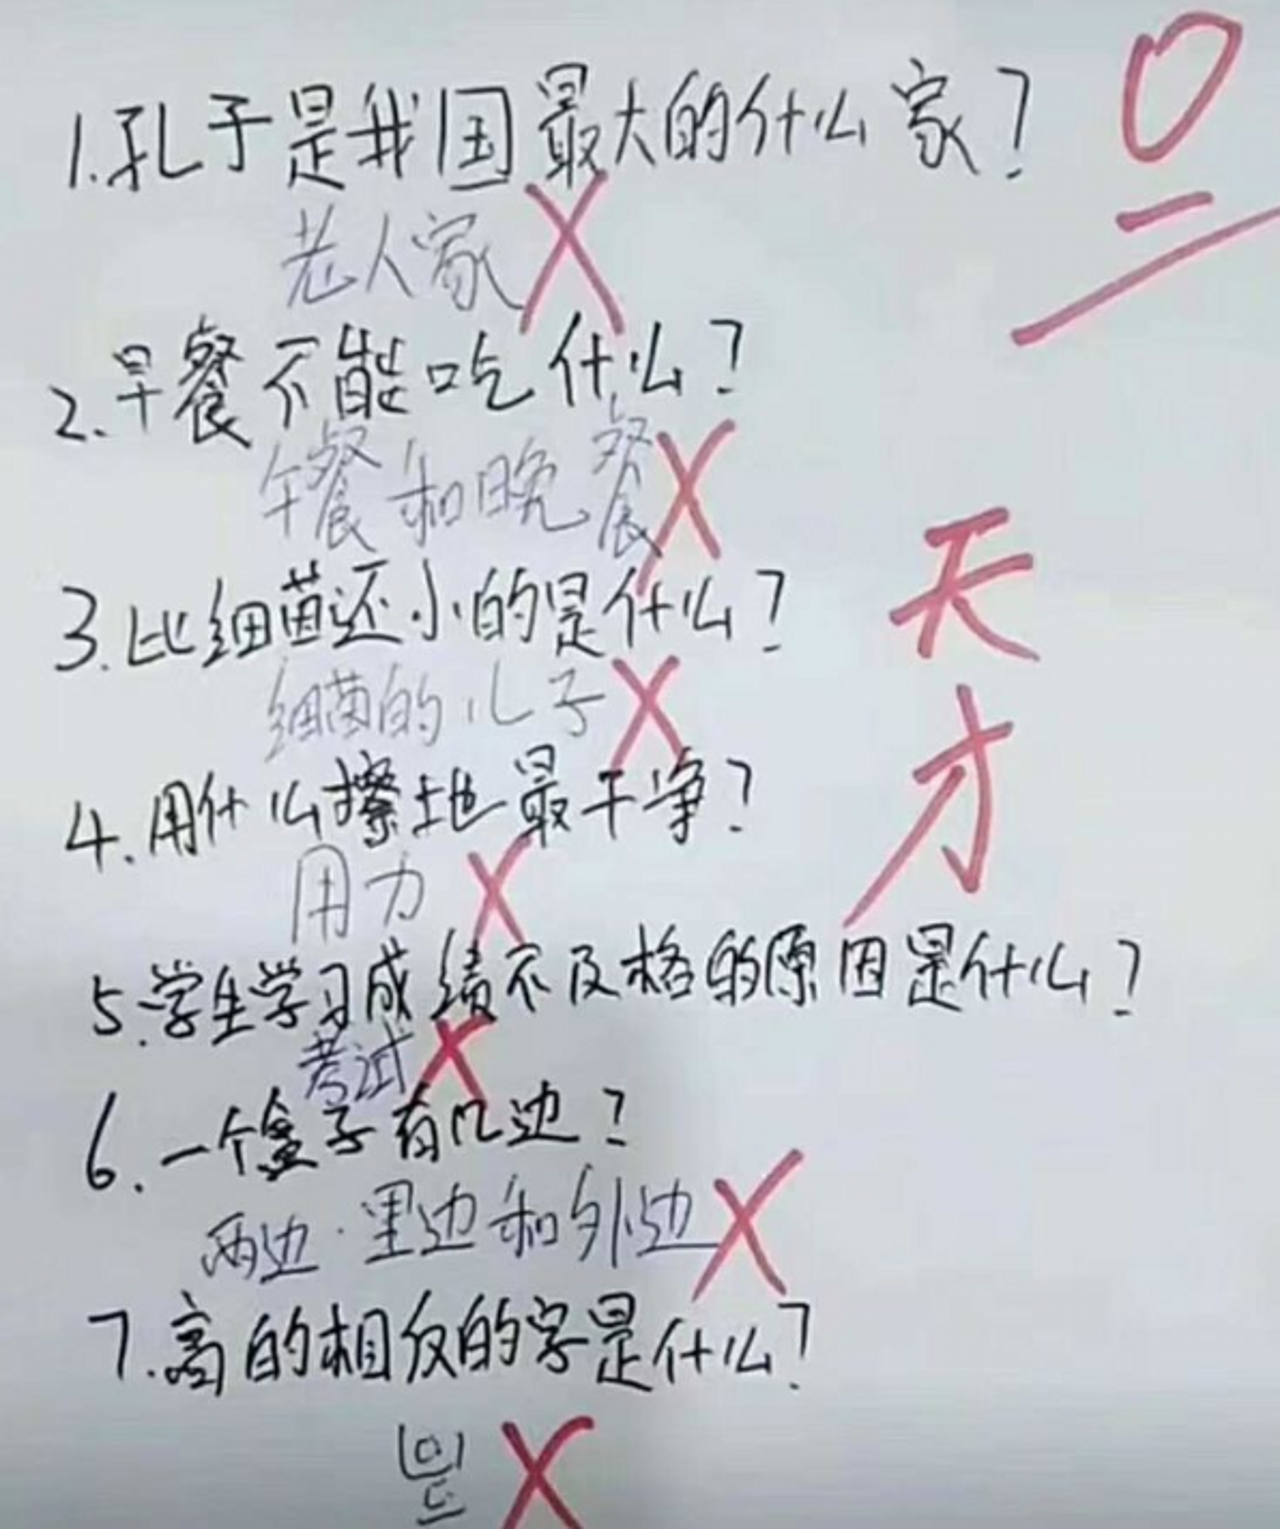 0
1.孔子是我国最大的什么家?
老人家
2.早餐不能吃什么?
午餐和晚餐
3.比细菌还小的是什么?
细菌的儿子
天才
4.用什么擦地最干净?
用力
5.学生学习成绩不及格的原因是什么?
考试
6.一个盒子有几边?
两边.里边和外边
7.高的相反的字是什么?